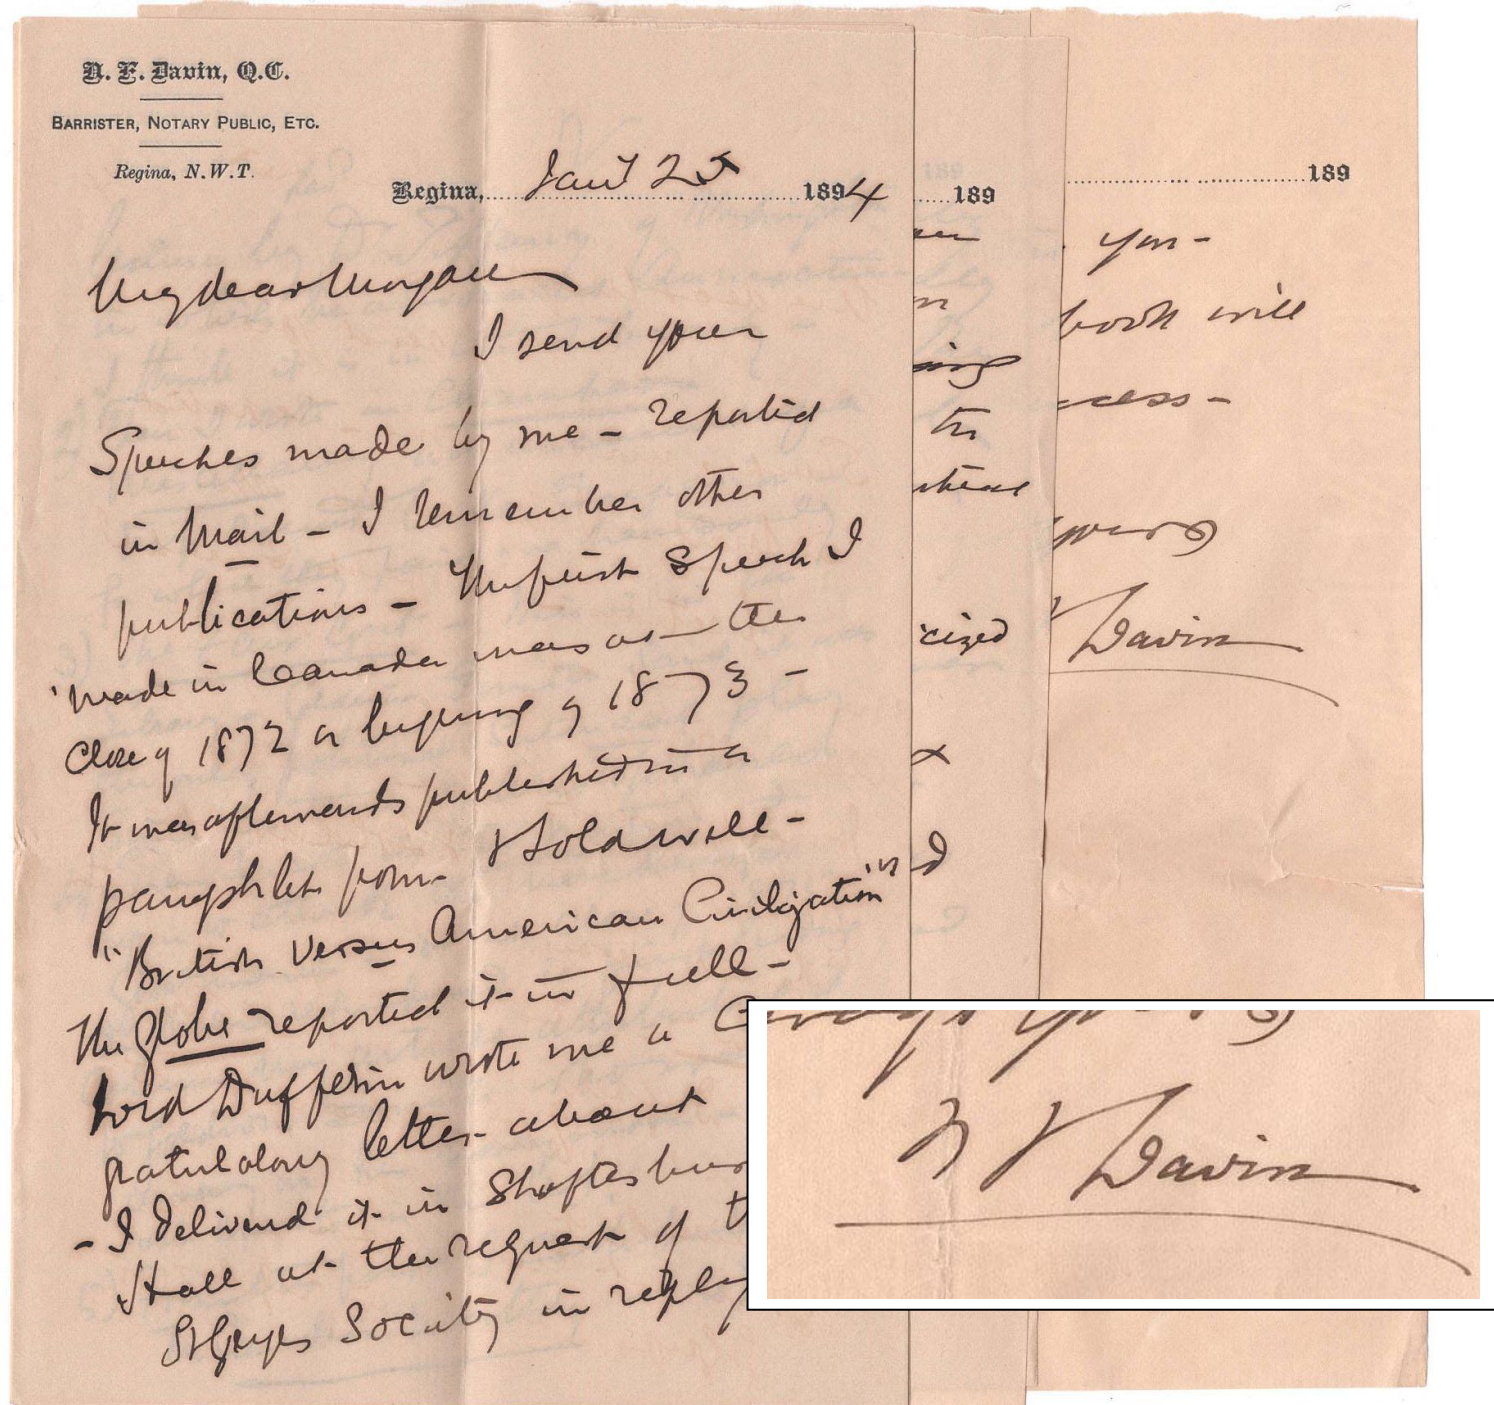 N. F. Davin, Q.C.
BARRISTER, NOTARY PUBLIC, ETC.
Regina, N.W.T.
Regina, Jany 25 1894
My dear Morgan
I send you
Speeches made by me – reported
in Mail – I remember other
publications – The first Speech I
made in Canada was at the
Close of 1872 or begining of 1873 –
It was afterwards published in a
pamphlet form Holdwell –
"British versus American Civilization"
The Globe reported it in full –
Lord Dufferin wrote me a Con
gratulatory letter about
– I delivered it in Shaftesbur
Hall at the request of t
St Georges Society in reply
189
ing
the
cized
189
you –
book will
ccess –
yours
Davin
yours
N F Davin